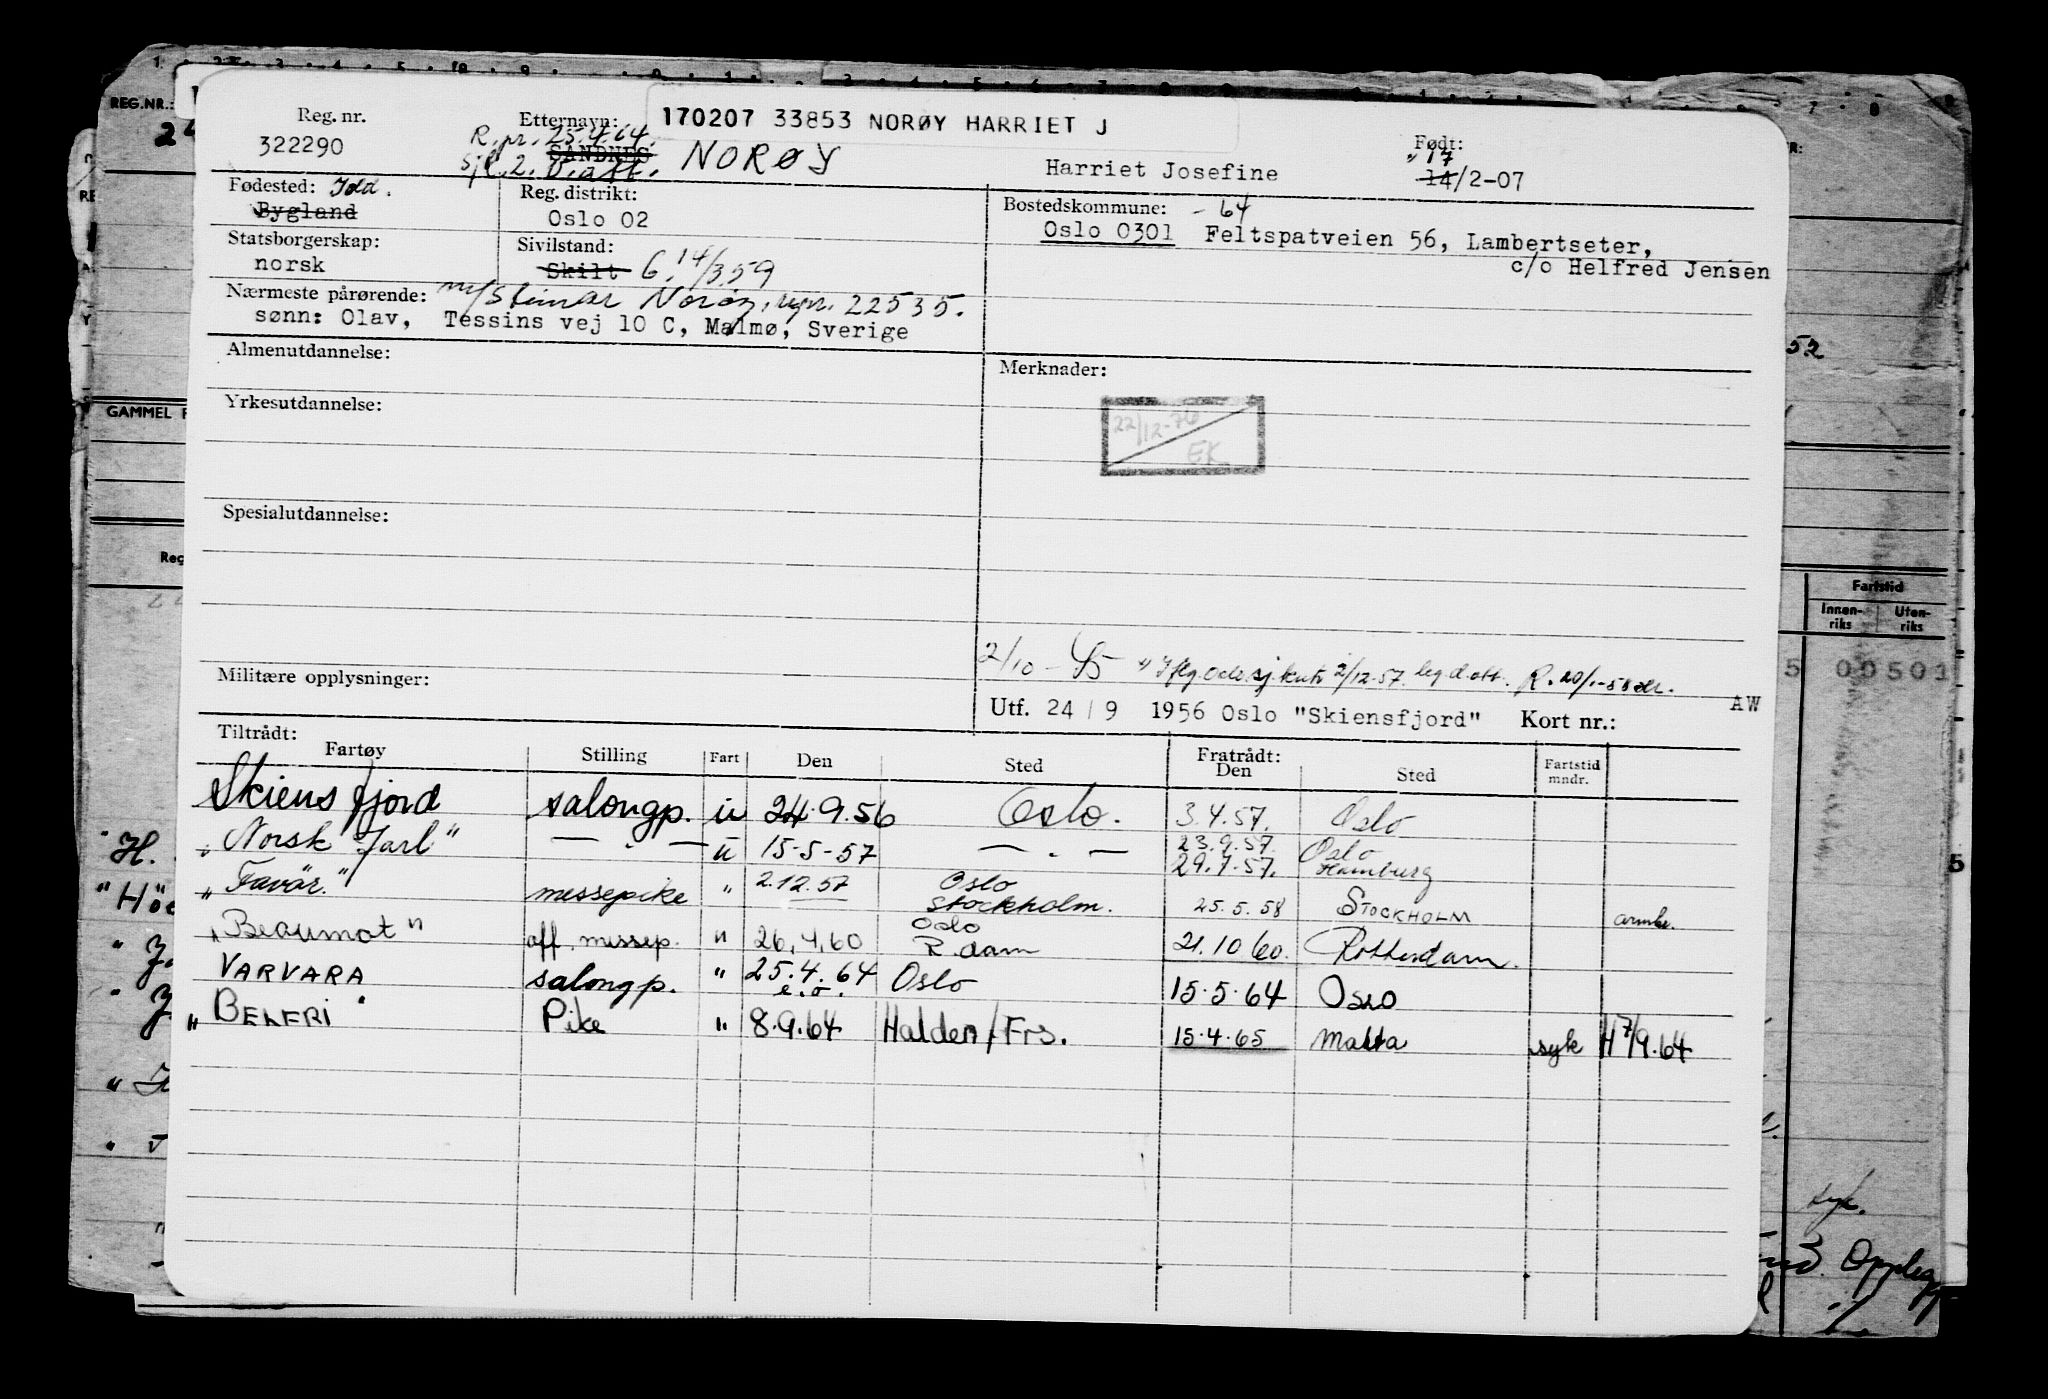 170207 33853 NORØY HARRIET J
Reg. nr.
322290
Etternavn:
R. pr. 25.4.64.
SANDNES NORØY
Harriet Josefine
Født:
" 17
14/2-07
Fødested:
Bygland
Reg. distrikt:
Oslo 02
Bostedskommune: - 64
Oslo 0301 Feltspatveien 56, Lambertseter,
c/o Helfred Jensen
Statsborgerskap:
norsk
Sivilstand:
Skilt G. 14/3.59
Nærmeste pårørende: Norøy, 22535.
sønn: Olav, Tessins vej 10 C, Malmø, Sverige
Almenutdannelse:
Merknader:
Yrkesutdannelse:
22/12-76
EK
Spesialutdannelse:
2/10 - 45 2/12-57
Militære opplysninger:
Utf. 24 / 9 1956 Oslo "Skiensfjord" Kort nr.:
AW
Tiltrådt:
Fartøy Stilling Fart Den Sted Fratrådt: Den Sted Fartstid mndr.
Skiensfjord salongp. u 24.9.56 Oslo. 3.4.57. Oslo
"Norsk Jarl" — " — u 15-5-57 — " — 23.9.57. Oslo
29.7.57. Hamburg
"Favär." messepike " 2.12.57 Oslo
Stockholm. 25.5.58 STOCKHOLM
"Beaumot" off. messep. " 26.4.60 Oslo
R.dam 21.10 60. Rotterdam.
VARVARA salongp. " 25.4.64 Oslo 15.5.64 Oslo
e.o.
"BELFRI" Pike " 8.9.64 Halden/Frs. 15.4.65 Malta syk H 7/9.64
REG.NR.:
GAMMEL
Fartstid
Innen-
riks
Uten-
riks
00501
syk.